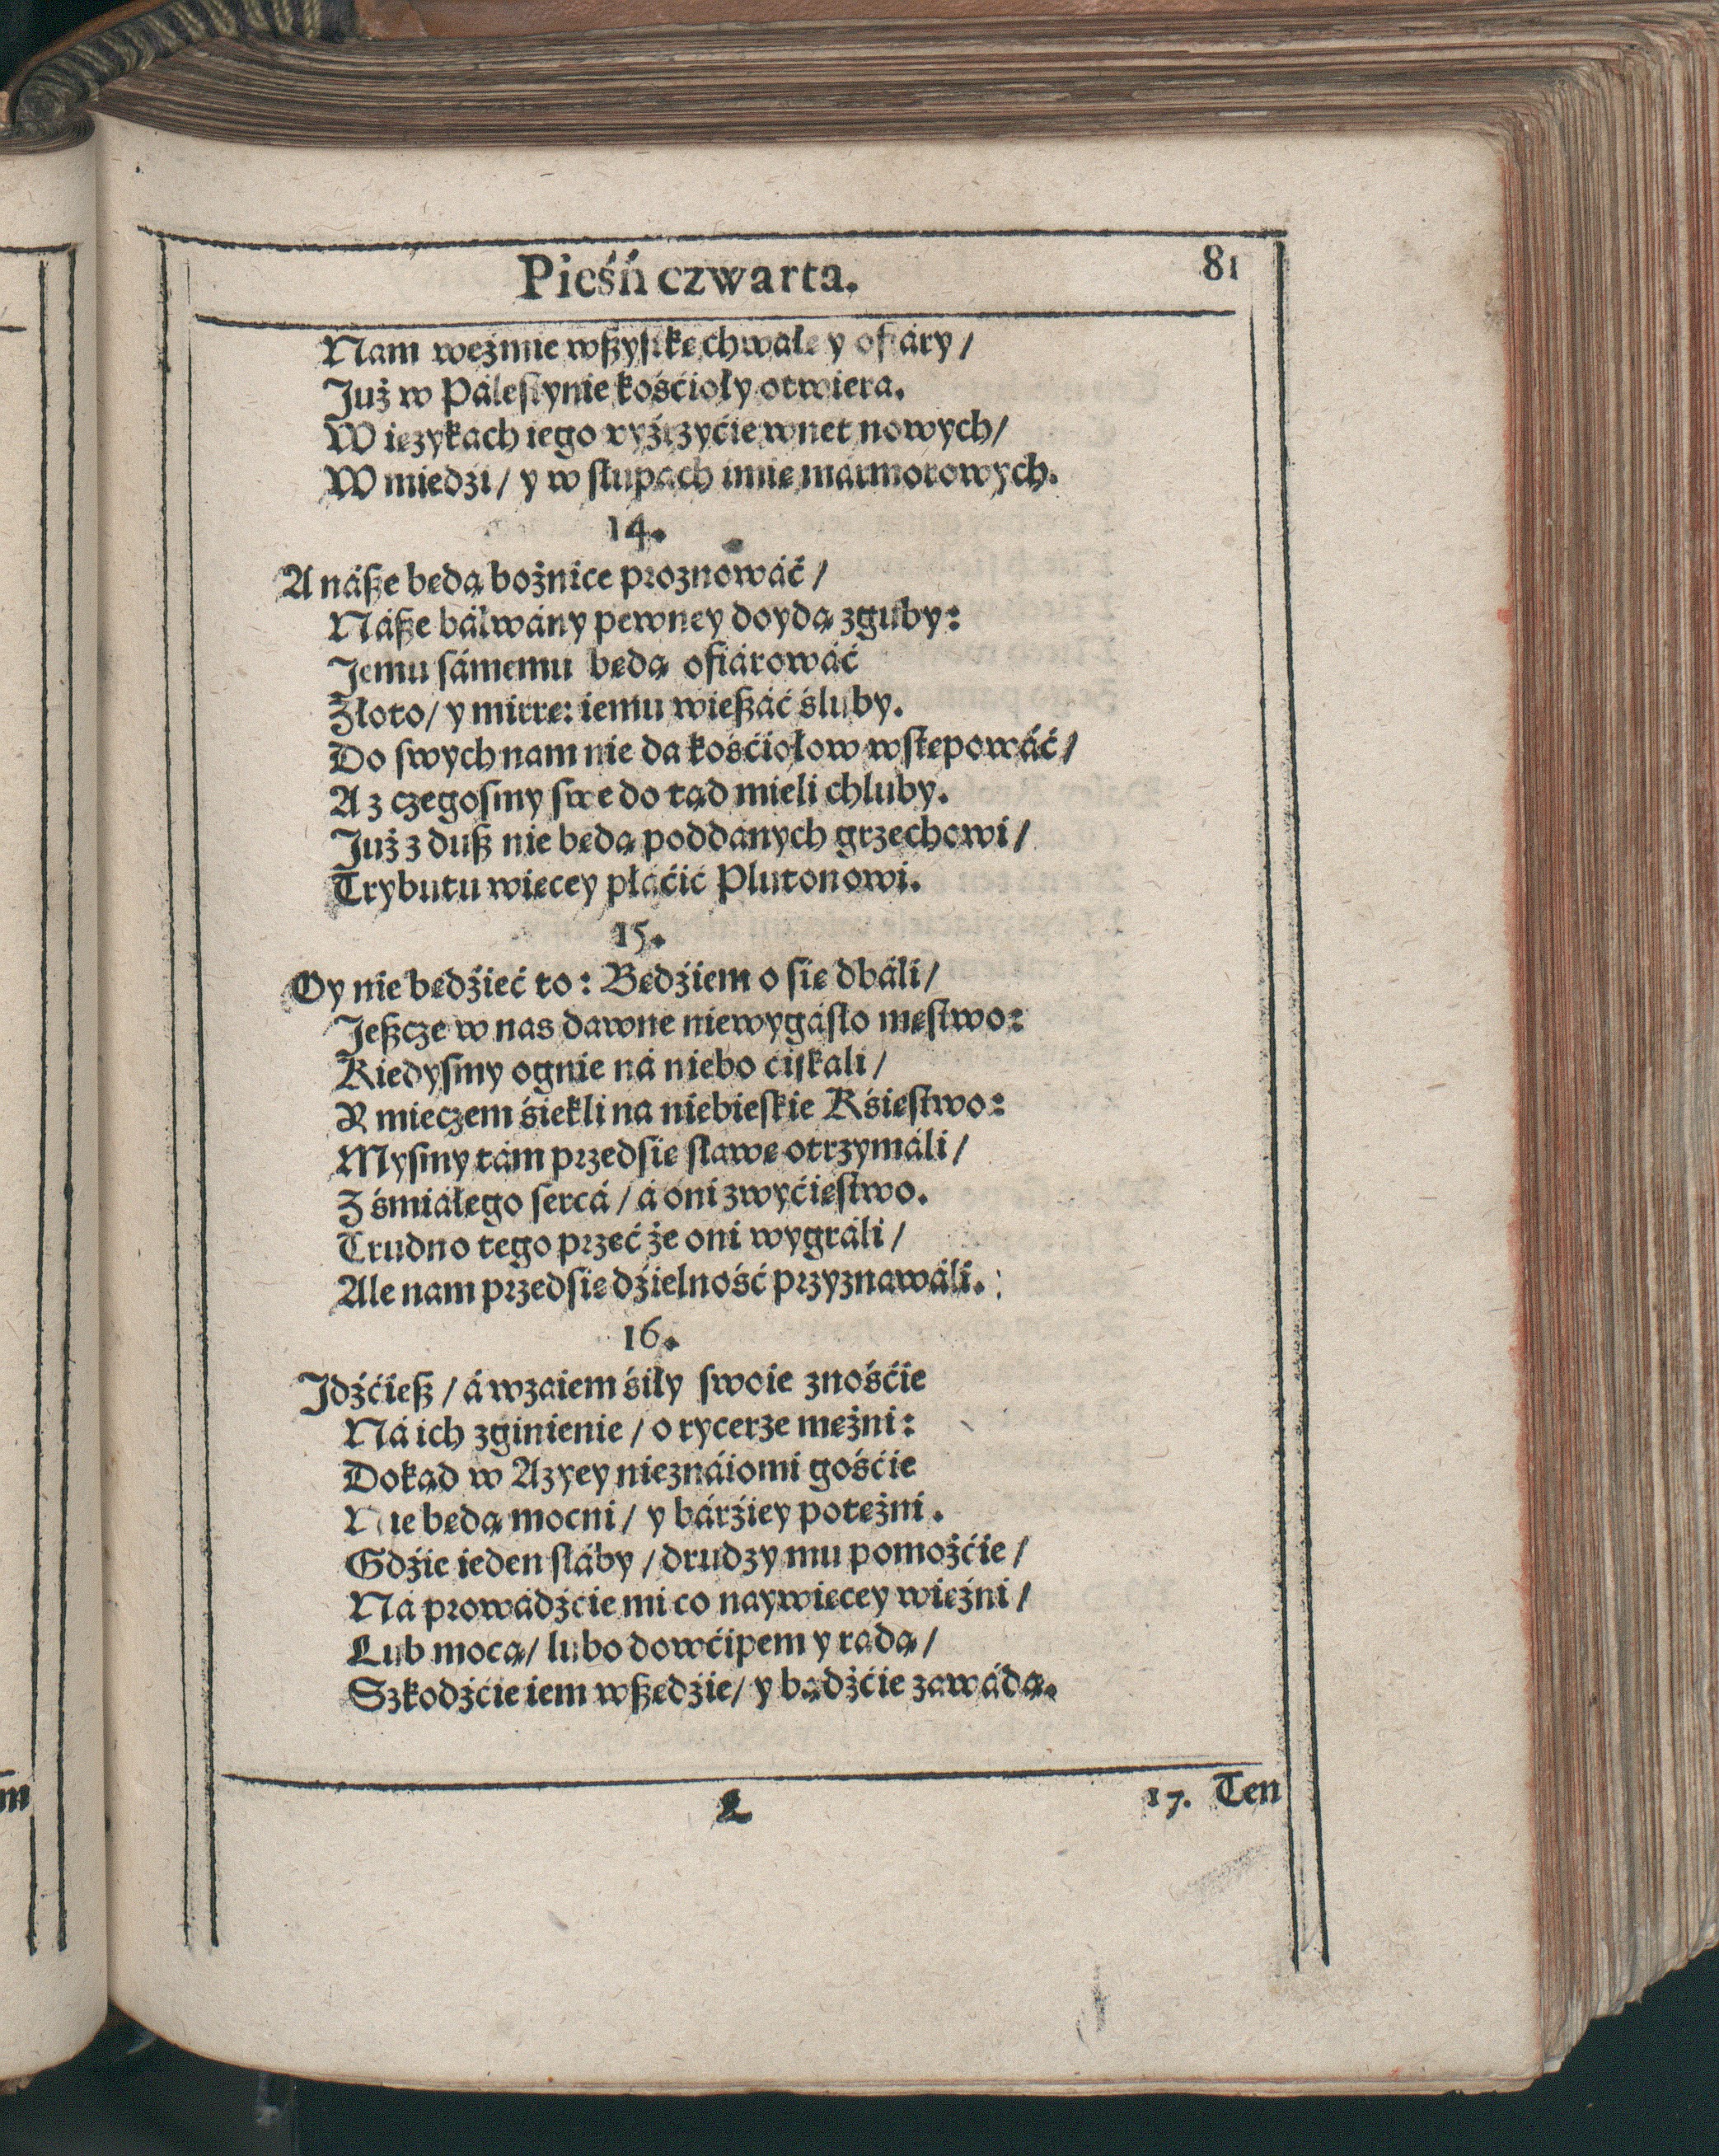 Pieśń czwarta. 81
Nam weźmie wßzystkę chwałę y ofiáry /
Już w Pálestynie kośćioły otwiera.
W ięzykách iego vyźrzyćie wnet nowych /
W miedzi / y w słupách imię mármorowych.
14.
A náße będą bożnice proznowáć /
Náße báłwány pewney doydą zguby:
Jemu sámemu będą ofiárowáć
Złoto / y mirrę: iemu wießáć śluby.
Do swych nam nie da kośćiołow wstępowáć /
A z czegosmy swe do tąd mieli chluby.
Już z duß nie będą poddánych grzechowi /
Trybutu więcey płáćić Plutonowi.
15.
Oy nie będźieć to: Będźiem o się dbáli /
Jeßcze w nas dawne niewygásło męstwo:
Kiedysmy ognie ná niebo ćiskali /
Y mieczem śiekli na niebieskie Kśięstwo:
Mysmy tám przedsię sławę otrzymáli /
Z śmiáłego sercá / á oni zwyćięstwo.
Trudno tego przeć że oni wygráli /
Ale nam przedsię dźielność przyznawáli.
16.
Jdźćieß / á wzaiem śiły swoie znośćie
Ná ich zginienie / o rycerze mężni:
Dokąd w Azyey nieznáiomi gośćie
Nie będą mocni / y bárźiey potężni.
Gdźie ieden słáby / drudzy mu pomożćie /
Ná prowadźćie mi co naywięcey więźni /
Lub mocą / lubo dowćipem y radą /
Szkodźćie iem wßędźie / y bądźćie zawádą.
L 17. Ten
m